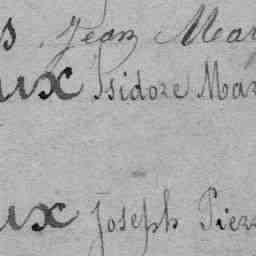 s Jean Mar
ux Isidore Mar
ux Joseph Pierr